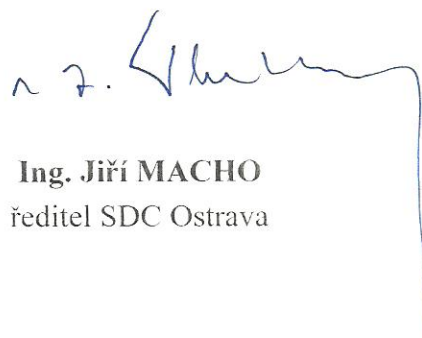 Ing. Jiří MACHO
ředitel SDC Ostrava